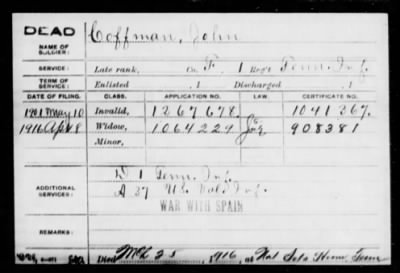 DEAD
NAME OF SOLDIER:
Coffman, John
SERVICE:
Late rank, Co. F. 1 Reg't Tenn. Inf.
TERM OF SERVICE:
Enlisted , 1 Discharged , 1
DATE OF FILING. CLASS. APPLICATION NO. LAW. CERTIFICATE NO.
1901 May 10 Invalid, 1267678. 1041367.
1916 Apr 8 Widow, 1064229 908381
Minor,
ADDITIONAL SERVICES:
D 1 Tenn. Inf.
A 37 U.S. Vol. Inf.
WAR WITH SPAIN
REMARKS:
Died Mch 25, 1916, at Nat Sol. Home, Tenn